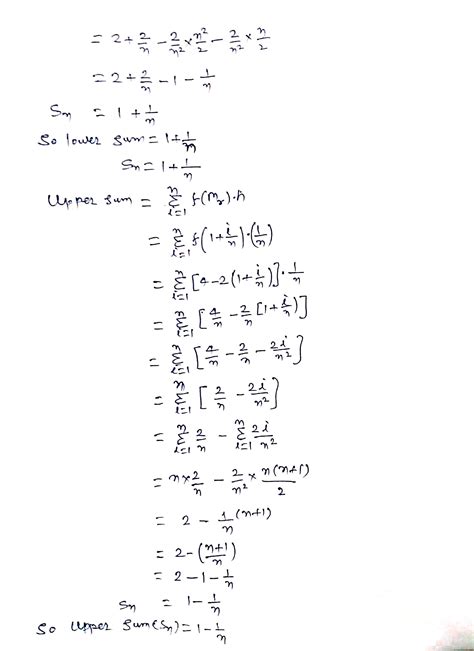 = 2 + 2/n - 2/n² × n²/2 - 2/n² × n/2
= 2 + 2/n - 1 - 1/n
Sn = 1 + 1/n
So lower sum = 1 + 1/n
Sn = 1 + 1/n
Upper sum = Σ_{i=1}^{n} f(Mr)·h
= Σ_{i=1}^{n} f(1 + i/n)·(1/n)
= Σ_{i=1}^{n} [4 - 2(1 + i/n)]·1/n
= Σ_{i=1}^{n} [4/n - 2/n [1 + i/n)]
= Σ_{i=1}^{n} [4/n - 2/n - 2i/n²]
= Σ_{i=1}^{n} [2/n - 2i/n²]
= Σ_{i=1}^{n} 2/n - Σ_{i=1}^{n} 2i/n²
= n × 2/n - 2/n² × n(n+1)/2
= 2 - 1/n (n+1)
= 2 - (n+1/n)
= 2 - 1 - 1/n
Sn = 1 - 1/n
So Upper Sum(Sn) = 1 - 1/n